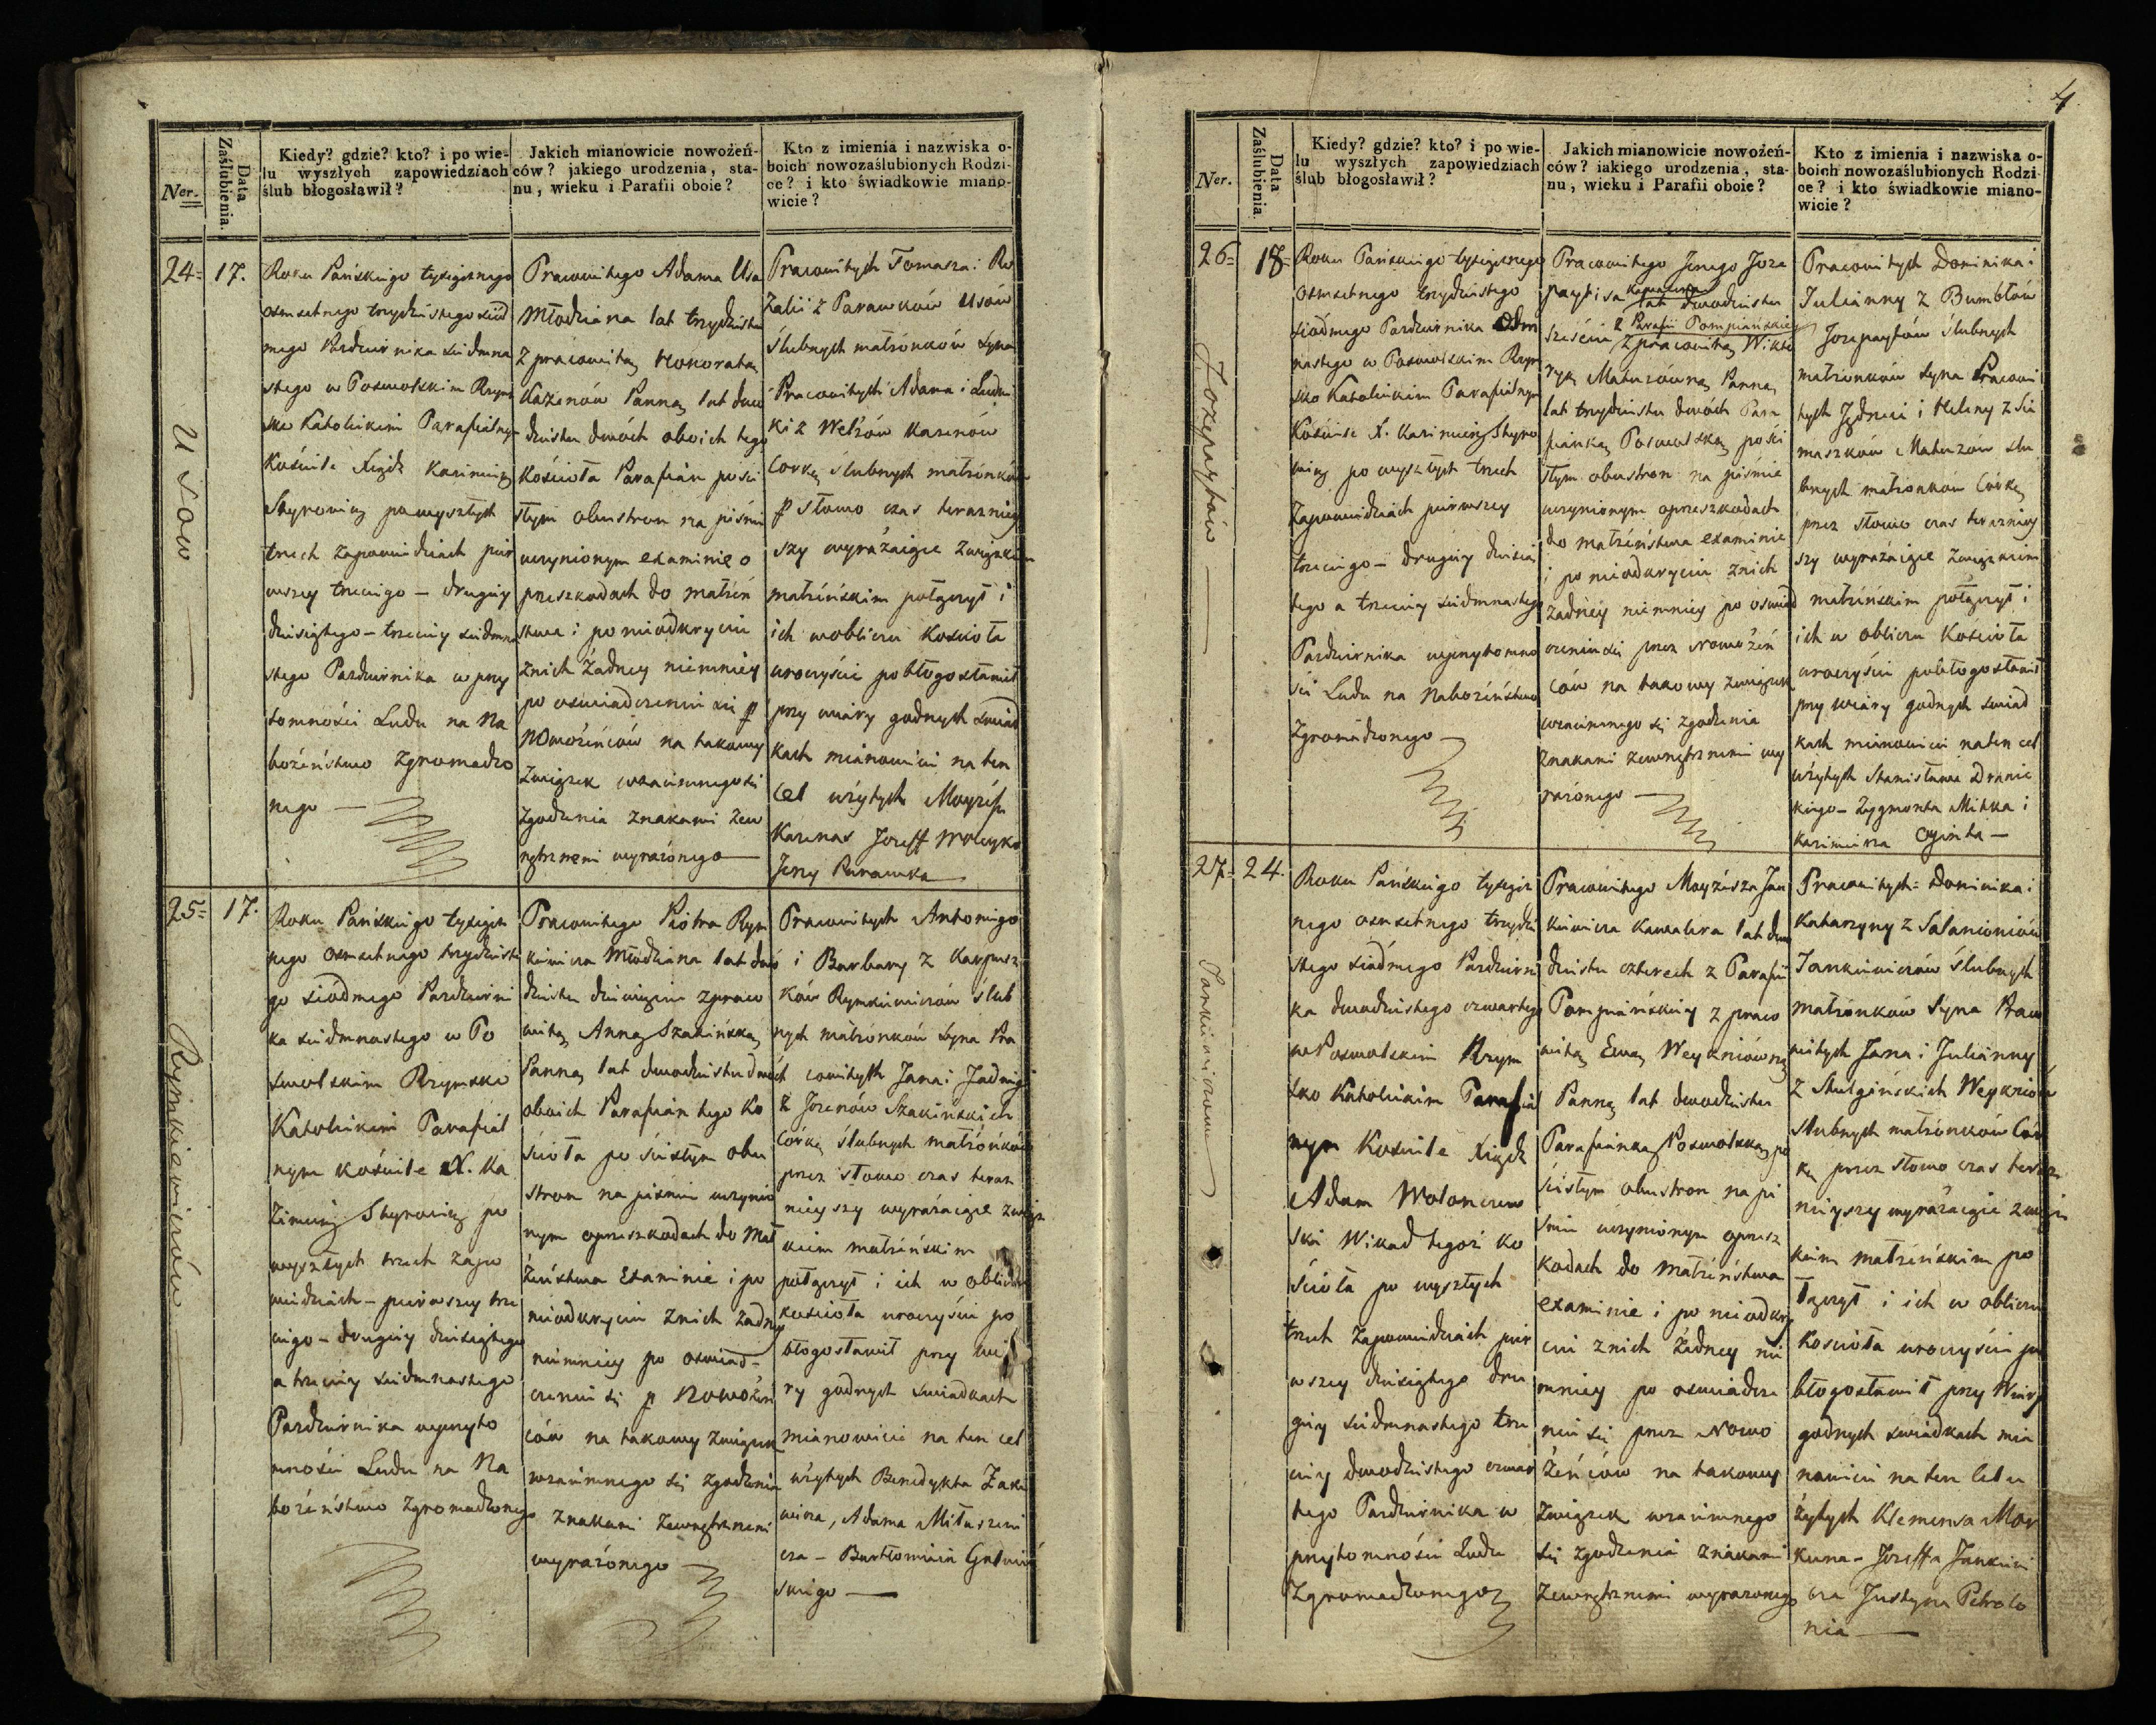 4.
Ner.
Data Zaślubienia.
Kiedy? gdzie? kto? i po wie-
lu wyszłych zapowiedziach
ślub błogosławił?
Jakich mianowicie nowożeń-
ców? jakiego urodzenia, sta-
nu, wieku i Parafii oboie?
Kto z imienia i nazwiska o-
boich nowozaślubionych Rodzi-
ce? i kto świadkowie miano-
wicie?
24=
17.
Usow
Roku Pańskiego tysiącznego
osmsetnego trzydziestego siód
mego Pazdziernika siedmna
stego w Poswolskim Rzym
sko Katolickim Parafialnym
Kościele Xiądz Kazimierz
Skyrowicz po wyszłych
trzech zapowiedziach pier
wszey trzeciego - drugiey
dziesiątego - trzeciey siedmna
stego Pazdziernika w przy
tomności Ludu na Na
bożeństwo zgromadzo
nego
Pracowitego Adama Usa
Młodziana lat trzydziestu
z pracowitą Honoratą
Kazenów Panną lat dwu
dziestu dwóch oboich tego
Kościoła Parafian po ści
słym obustron na piśmie
uczynionym examinie o
przeszkodach do małżeń
stwa i po nieodkryciu
z nich żadney niemniey
po oswiadczeniu się p
Nowożeńców na takowy
związek wzaiemnego się
zgodzenia znakami zew
nętrznemi wyrażonego
Pracowitych Tomasza i Ro
zalii z Parawków Usów
Ślubnych małżonków Syna
Pracowitych Adama i Ludwi
ki z Wełzów Kazenów
Corkę ślubnych małżonków
p słowo czas teraźniey
szy wyrażaiące związkiem
małżeńskim połączył i
ich w obliczu Kościoła
uroczyście pobłogosławił
przy wiary godnych świad
kach mianowicie na ten
cel użytych Moyżesz
Kazenas Jozeff Wolczyk
Jerzy Parawka
25=
17.
Rymkiewiczów
Roku Pańskiego tysiącz
nego osmsetnego trzydzieste
go siódmego Pazdzierni
ka siedmnastego w Po
swolskim Rzymsko
Katolickim Parafial
nym kościele X. Ka
zimierz Skyrowicz po
wyszłych trzech zapo
wiedziach - pierwszey trze
ciego - drugiey dziesiątego
a trzeciey siedmnastego
Pazdziernika w przyto
mności Ludu na Na
bożeństwo zgromadzonego
Pracowitego Piotra Rym
kiewicza Młodziana lat dwó
dziestu dziewięciu z praco
witą Anną Szakińską
Panną lat dwudziestu dwóch
oboich Parafian tego Ko
ścioła po ścisłym obu
stron na piśmie uczynio
nym o przeszkodach do Mał
żeństwa Examinie i po
nieodkryciu z nich żadney
niemniey po oswiad-
czeniu się p Nowożeń
ców na takowy związek
wzaiemnego się zgodzenia
znakami zewnętrznemi
wyrażonego
Pracowitych Antoniego
i Barbary z Karpusz
ków Rymkiewiczów ślub
nych małżonków Syna Pra
cowitych Jana i Jadwigi
z Jozenów Szakińskich
Córkę ślubnych małżonków
przez słowo czas teraz
nieyszy wyrażaiące związ
kiem małżeńskim
połączył i ich w obliczu
kościoła uroczyście po
błogosławił przy wia
ry godnych świadkach
mianowicie na ten cel
użytych Benedykta Zake
wicza, Adama Mituszewi
cza - Bartłomieia Galwiń
skiego
Ner.
Data Zaślubienia.
Kiedy? gdzie? kto? i po wie-
lu wyszłych zapowiedziach
ślub błogosławił?
Jakich mianowicie nowożeń-
ców? iakiego urodzenia, sta-
nu, wieku i Parafii oboie?
Kto z imienia i nazwiska o-
boich nowozaślubionych Rodzi-
ce? i kto świadkowie miano-
wicie?
26=
18=
Jozepaytów
Roku Pańskiego tysiącznego
osmsetnego trzydziestego
siódmego Pazdziernika Ośm
nastego w Poswolskim Rzym
sko Katolickim Parafialnym
Kościele X. Kazimierz Skyro
wicz po wyszłych trzech
Zapowiedziach pierwszey
trzeciego - drugiey dziesią
tego a trzeciey siedmnastego
Pazdziernika w przytomno
ści Ludu na Nabożeństwo
Zgromadzonego
Pracowitego Jerzego Joze
paytisa Kawalera lat dwudziestu
sześciu z Parafii Pompiańskiey z pracowitą Wikto
ryą Matuzówną Panną
lat trzydziestu dwóch Para
fianką Poswolską po ści
słym obustron na piśmie
uczynionym o przeszkodach
do małżeństwa examinie
i po nieodkryciu z nich
żadney niemniey po oswiad
czeniu się przez Nowożeń
ców na takowy związek
wzaiemnego się zgodzenia
znakami zewnętrznemi wy
rażonego
Pracowitych Dominika i
Julianny z Bumbłów
Jozepaytów ślubnych
małżonków Syna Pracowi
tych Jędrzei i Heleny z Si
maszków Matuzów ślu
bnych małżonków Córkę
przez słowo czas teraźniey
szy wyrażaiące związkiem
małżeńskim połączył i
ich w obliczu Kościoła
uroczyście pobłogosławił
przy wiary godnych świad
kach mianowicie na ten cel
użytych Stanisława Dranic
kiego - Zygmonta Mitka i
Kazimierza Oginta
27=
24.
Jankiewiczow
Roku Pańskiego tysiącz
nego osmsetnego trzydzie
stego siódmego Pazdzierni
ka dwudziestego czwartego
w Poswolskim Rzym
sko Katolickim Parafial
nym Kościele Xiądz
Adam Wolonczew
ski Wikad tegoż ko
ścioła po wyszłych
trzech Zapowiedziach pier
wszey dziesiątego dru
giey siedmnastego trze
ciey dwudziestego czwar
tego Pazdziernika w
przytomności Ludu
Zgromadzonego
Pracowitego Moyżesza Jan
kiewicza Kawalera lat dwu
dziestu czterech z Parafii
Pompiańskiey z praco
witą Ewą Weykniówną
Panną lat dwudziestu
Parafianką Poswolską po
ścisłym obustron na pi
śmie uczynionym o przesz
kodach do małżeństwa
examinie i po nieodkry
ciu z nich żadney nie
mniey po oswiadcze
niu się przez Nowo
żeńców na takowy
Związek wzaiemnego
się zgodzenia znakami
zewnętrznemi wyrażonego
Pracowitych = Dominika i
Katarzyny z Salanioniów
Jankiewiczów Ślubnych
małżonków Syna Praco
witych Jana i Julianny
z Skulgińskich Weykniów
ślubnych małżonków Cór
kę przez słowo czas teraz
nieyszy wyrażaiące związ
kiem małżeńskim po
łączył i ich w obliczu
Kościoła uroczyście po
błogosławił przy Wiary
godnych świadkach mia
nowicie na ten cel u
żytych Klemensa Mor
kuna - Jozeffa Jankiewi
cza Justyna Petrolo
nia